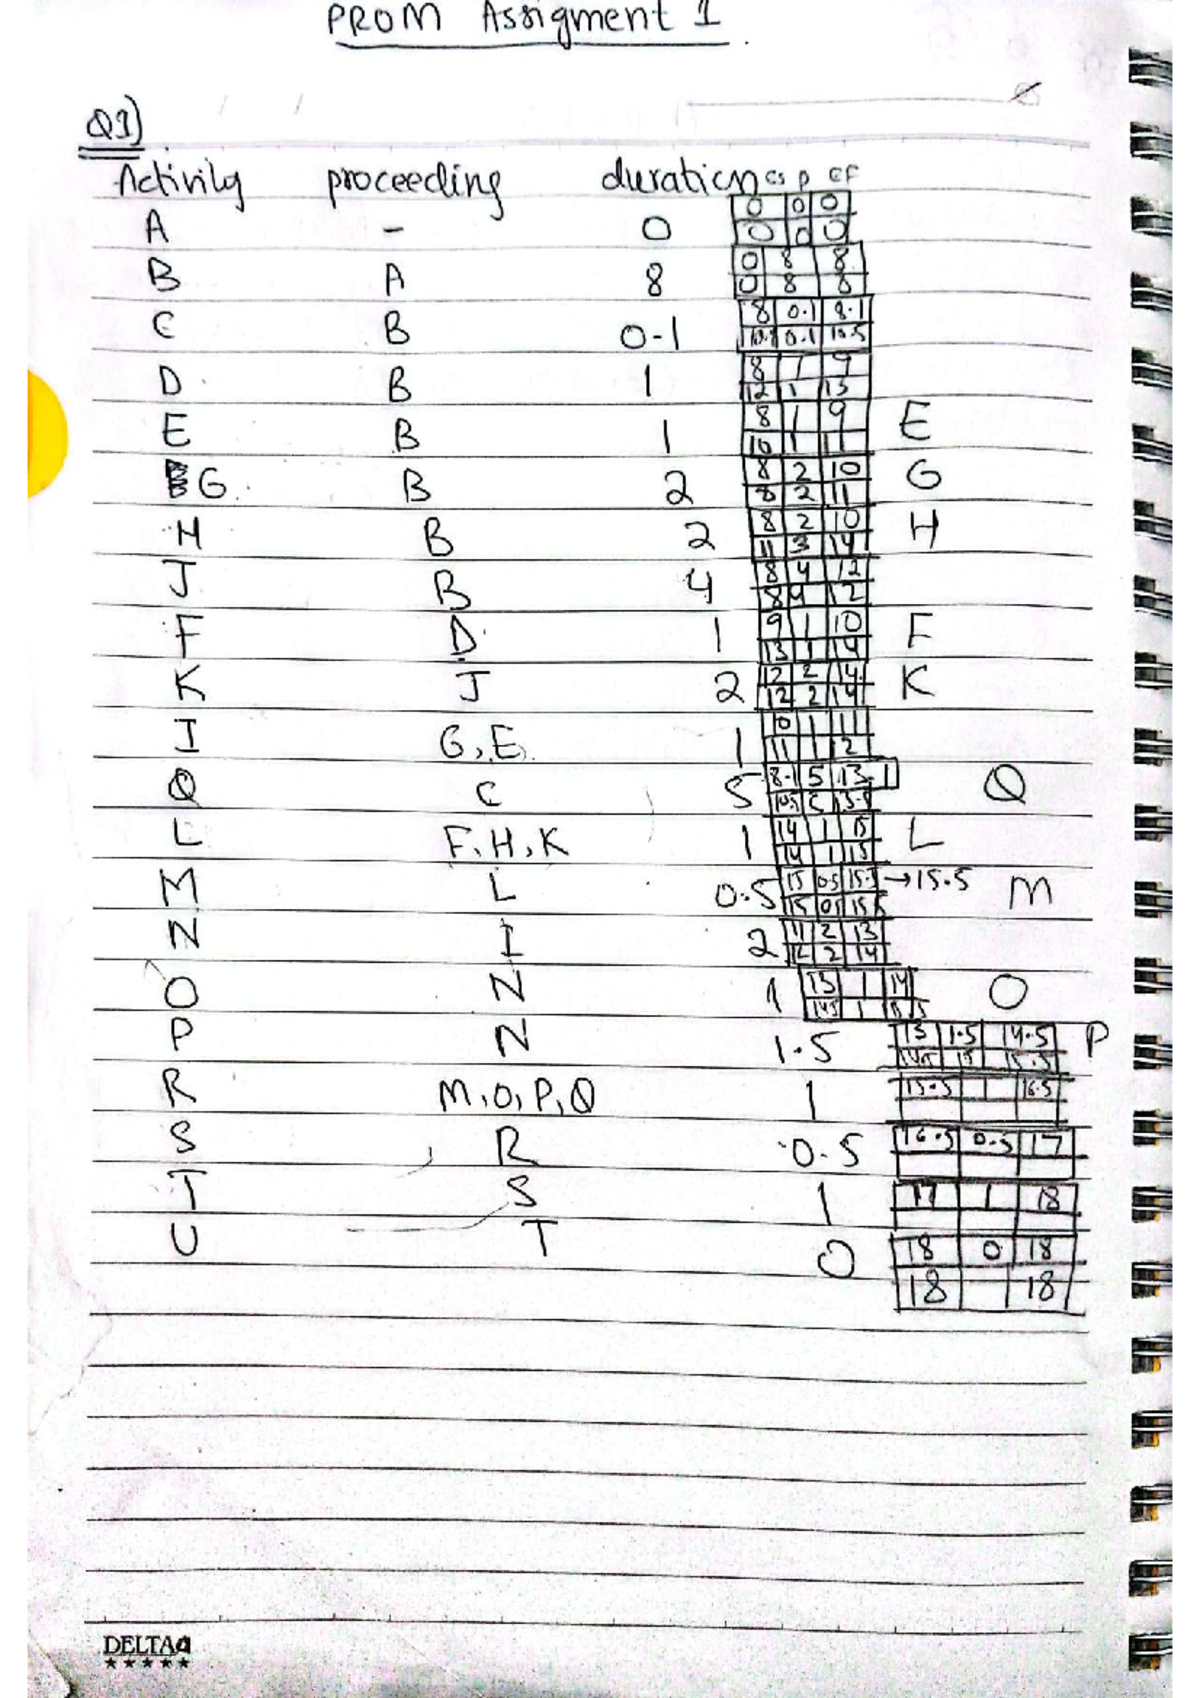 PROM Assigment 1
Q1)
Activity proceeding duration ES D EF
A - 0 0 0 0
0 0 0
B A 8 0 8 8
0 8 8
C B 0.1 8 0.1 8.1
0.1 10.5
D B 1 8 1 9
12 1 13
E B 1 8 1 9 E
10 1 11
G B 2 8 2 10 G
8 2 11
H B 2 8 2 10 H
11 3 14
J B 4 8 4 12
8 4 12
F D 1 9 1 10 F
13 1 14
K J 2 12 2 14 K
12 2 14
I G, E 1 10 1 11
11 1 12
Q C 5 8.1 5 13.1 Q
10.5 5
L F, H, K 1 14 1 15 L
14 1 15
M L 0.5 15 0.5 15.5 →15.5 M
15 0.5 15.5
N I 2 11 2 13
12 2 14
O N 1 13 1 14 O
14.5 1 15.5
P N 1.5 13 1.5 14.5 P
15.5
R M, O, P, Q 1 15.5 1 16.5
S R 0.5 16.5 0.5 17
T S 1 17 1 18
U T 0 18 0 18
18 18
DELTA